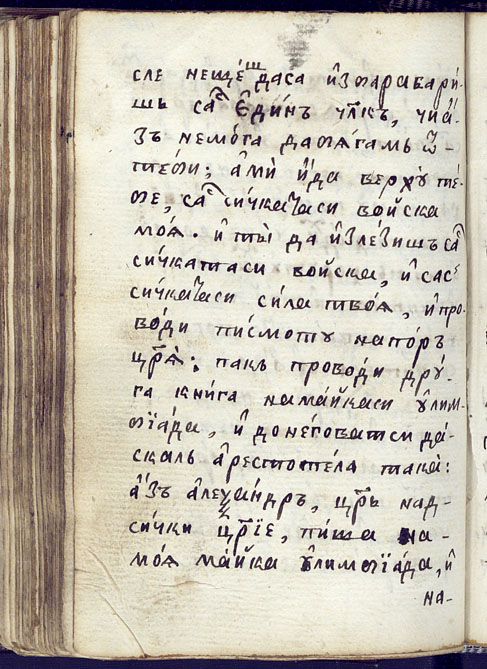 сле нещѐш да са и҆зꙮарабари-
шь саⷭ҇ е҆ди́нъ чл҃къ, чиа҆-
зъ немо́га да бѧ́гамь ѿ-
те́би; а҆мѝ и҆да верху те́-
бе, саⷭ҇ си́чка таси войска
моѧ̀. и҆ ты̀ да и҆зле́зишъ саⷭ҇
си́чката си войска, и҆ сасⷭ҇
си́чка таси си́ла твоѧ̀, и҆ про-
во́ди писмото напо́ръ
цр҃ѧ̀: пакь прово́ди дрꙋ́-
га кни́га нама́йка си ѹ҆лим-
бїа́да, и҆ до не́говатси да́-
скаль а҆ресто́те́ла така̀:
а҆́зъ а҆леѯа́ндръ, цр҃ь над-
си́чки цр҃їе, пи́ша на-
моѧ̀ ма́йка ѹ҆лимбїа́да, и҆
на-